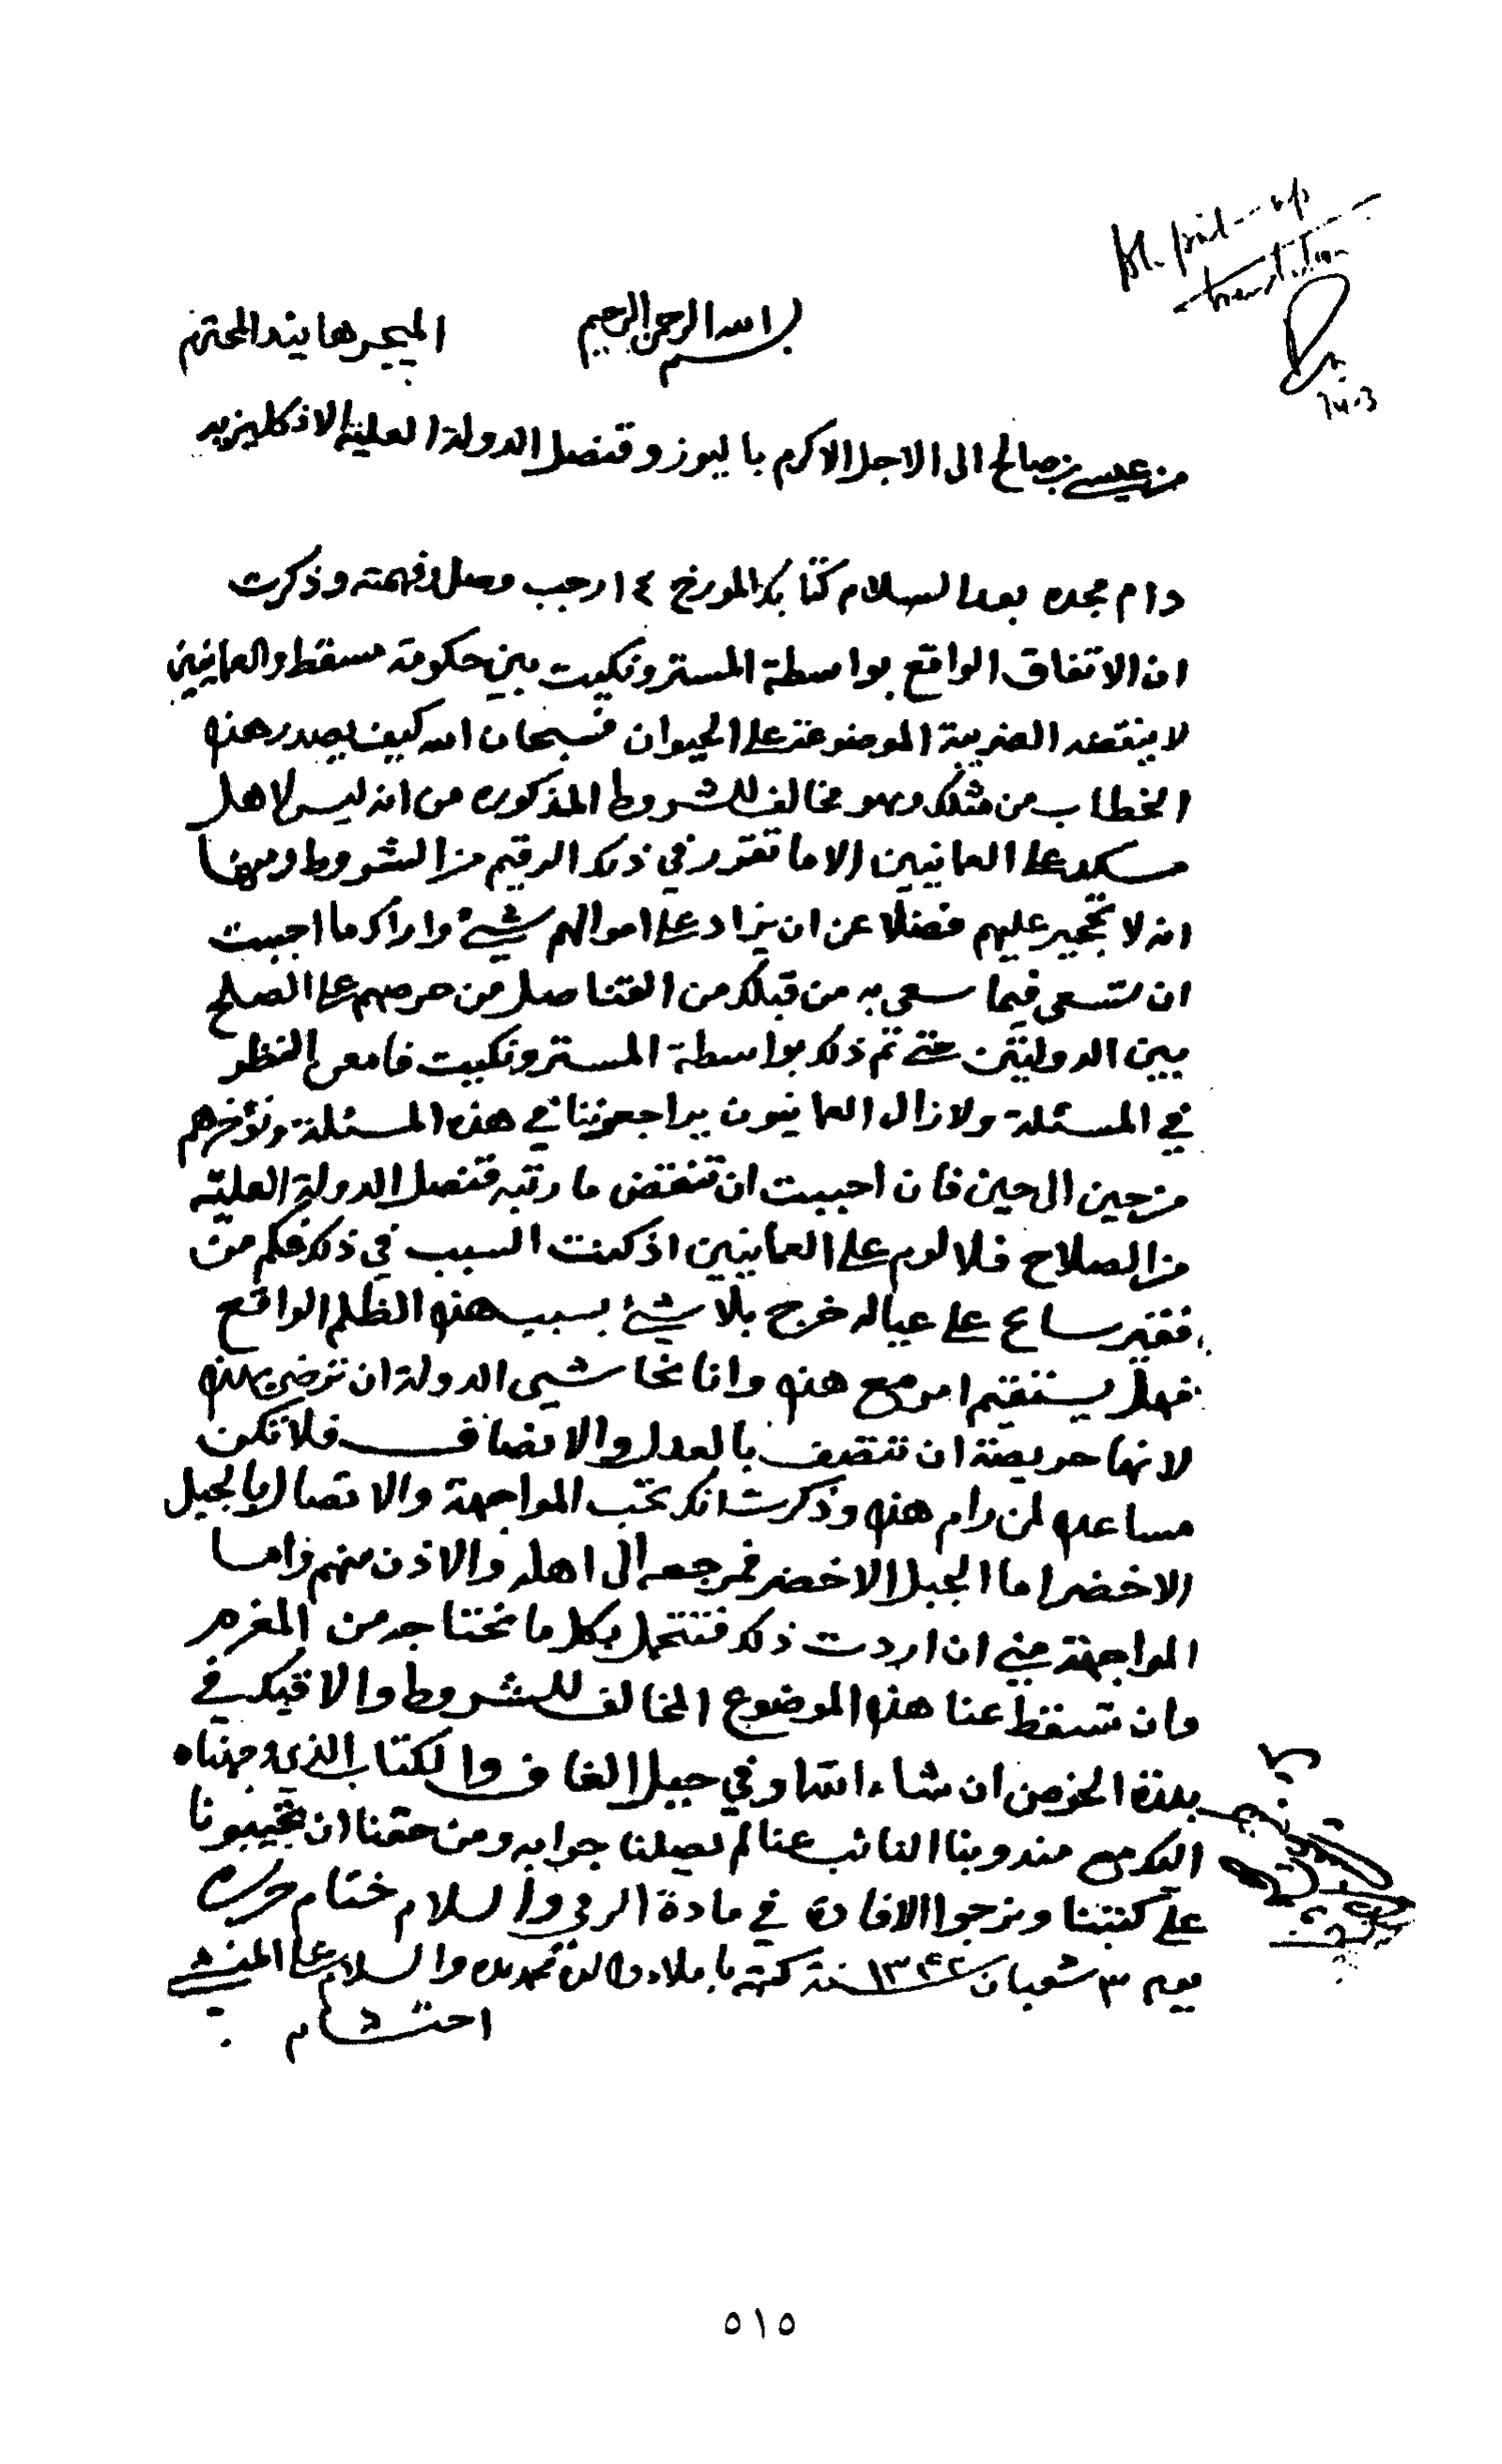 Pl. put-up
translation
بسم الله الرحمن الرحيم
الميجر هايند المحترم
من عيسى بن صالح الى الاجل الاكرم باليوز وقنصل الدولة العلية الانكليزيه
دام مجده بعد السلام كتابك المورخ ١٤ رجب وصل وفهمته وذكرت
ان الاتفاق الواقع بواسطة المستر ونكيت بين حكومة مسقط والعمانيين
لا ينقضه الضريبة الموضوعة على الحيوان فسبحان الله كيف يصدر هذه
الخطاب من مثلك وهو مخالف للشروط المذكوره من انه ليس لاهل
مسكد على العمانيين الا ما تقرر في ذلك الرقيم من الشروط ومنها
انه لا تحجير عليهم فضلا عن ان يزاد على اموالهم شيء واراك ما احببت
ان تسعى فيما سعى به من قبلك من القناصل من حرصهم على الصلح
بين الدولتين حتى تم ذلك بواسطة المستر ونكيت فامعن النظر
في المسئلة ولا زال العمانيون يراجعوننا في هذه المسئلة ونؤخرهم
من حين الى حين فان احببت ان تنقض ما رتبه قنصل الدولة العلية
من الصلاح فلا لوم على العمانيين اذ كنت السبب في ذلك فكم من
فقير ساع على عياله خرج بلا شيء بسبب هذه الظلم الواقع
فهل يستقيم امر مع هذه وانا نحاشي الدولة ان ترضى بهذه
لانها حريصة ان تتصف بالعدل والانصاف فلا تكن
مساعده لمن رام هذه وذكرت انك تحب المواجهة والاتصال بالجبل
الاخضر اما الجبل الاخضر فمرجعه الى اهله والاذن منهم واما
المواجهة مني ان اردت ذلك فتتحمل بكل ما نحتاجه من المغرم
وان تسقط عنا هذه الموضوع المخالف للشروط والاقيك في
بلدة الخوض ان شاء الله او في جبل الغاف والكتاب الذي وجهناه
اليك مع مندوبنا النائب عنا لم يصلنا جوابه ومن حقنا ان تجيبونا
على كتبنا ونرجوا الافادة في مادة الرمي والسلام ختام حرره
يوم ٣ شعبان سنة ١٣٤٢ كتبه باملاء والسلام على المنشي
احتشام
٥١٥